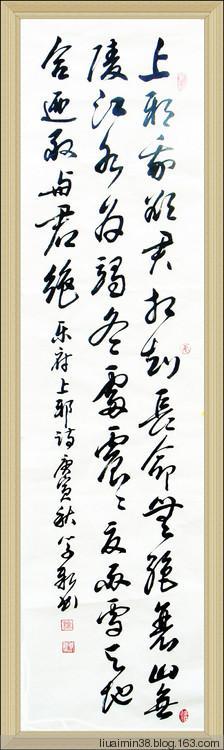 上邪我欲君相知長命無絶衰山無
陵江水為竭冬雷震〻夏雨雪天地
合迺敢與君絶 乐府上邪诗庚寅秋
liuaimin38.blog.163.com